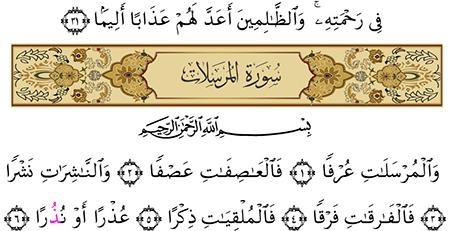 فِى رَحْمَتِهِۦۚ وَٱلظَّـٰلِمِينَ أَعَدَّ لَهُمْ عَذَابًا أَلِيمًۢا ﴿٣١﴾
سُورَةُ المُرْسَلَات
بِسْمِ ٱللَّهِ ٱلرَّحْمَـٰنِ ٱلرَّحِيمِ
وَٱلْمُرْسَلَـٰتِ عُرْفًا ﴿١﴾ فَٱلْعَـٰصِفَـٰتِ عَصْفًا ﴿٢﴾ وَٱلنَّـٰشِرَٰتِ نَشْرًا
﴿٣﴾ فَٱلْفَـٰرِقَـٰتِ فَرْقًا ﴿٤﴾ فَٱلْمُلْقِيَـٰتِ ذِكْرًا ﴿٥﴾ عُذْرًا أَوْ نُذُرًا ﴿٦﴾